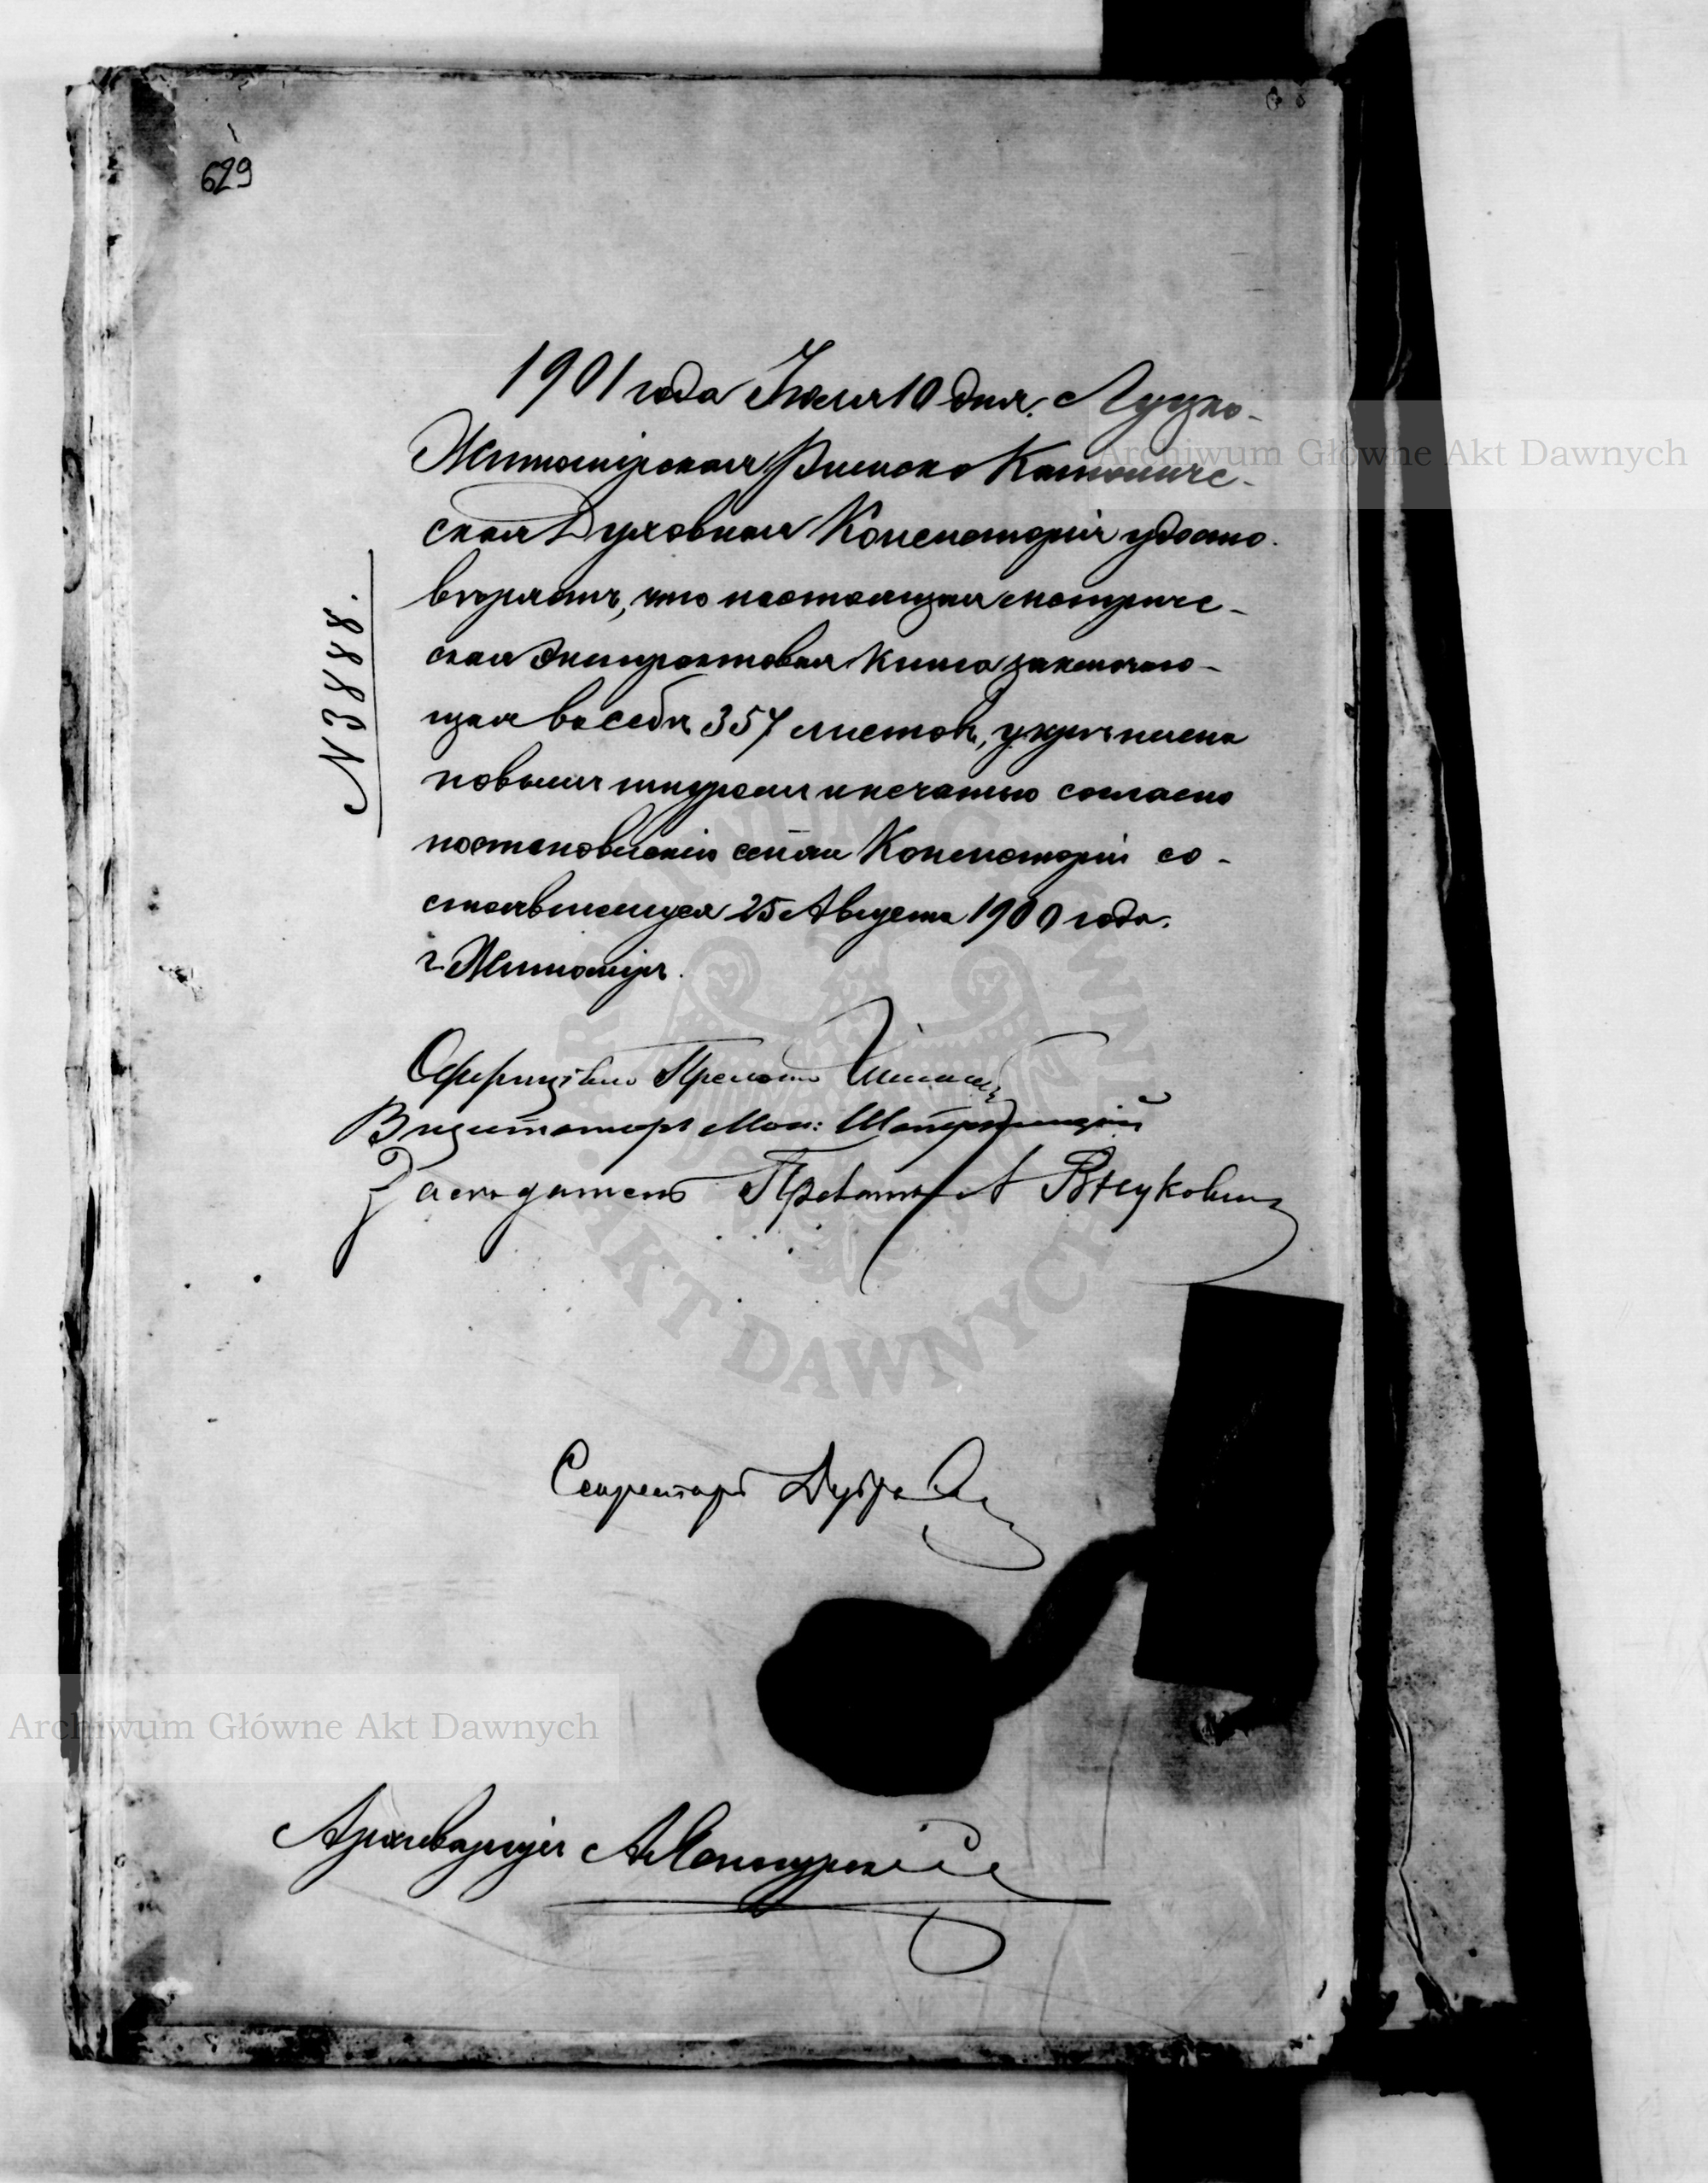 629
1901 года Іюля 10 дня. Луцко-
Житомірская Римско Католиче-
ская Духовная Консисторія удосто-
вѣряетъ, что настоящая метриче-
ская экстрактовая книга заключаю-
щая въ себѣ 357 листовъ, укрѣплена
новымъ шнуромъ и печатью согласно
постановленію сей же Консисторіи со-
стоявшемуся 25 Августа 1900 года.
г. Житоміръ.
N 3888.
Оффиціалъ Прелатъ
Визитаторъ Мон:
Засѣдатель Прелатъ А Внуковичъ
Секретарь
Архиваріусъ
Archiwum Główne Akt Dawnych
ARCHIWUM GŁÓWNE AKT DAWNYCH
Archiwum Główne Akt Dawnych